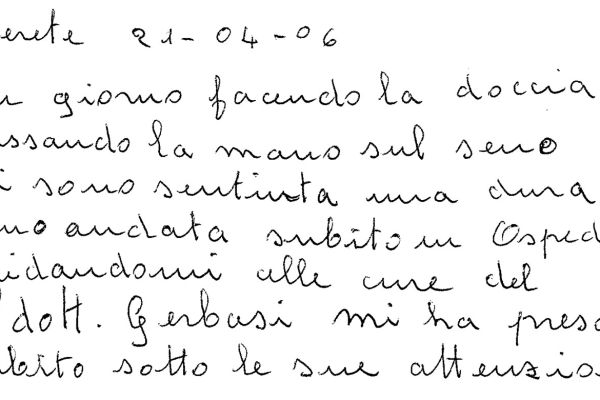 erete 21-04-06
n giorno facendo la doccia
ssando la mano sul seno
i sono sentinta una dura
no andata subito in Osped
idandomi alle cure del
dott. Gerbasi mi ha preso
bito sotto le sue attenzio